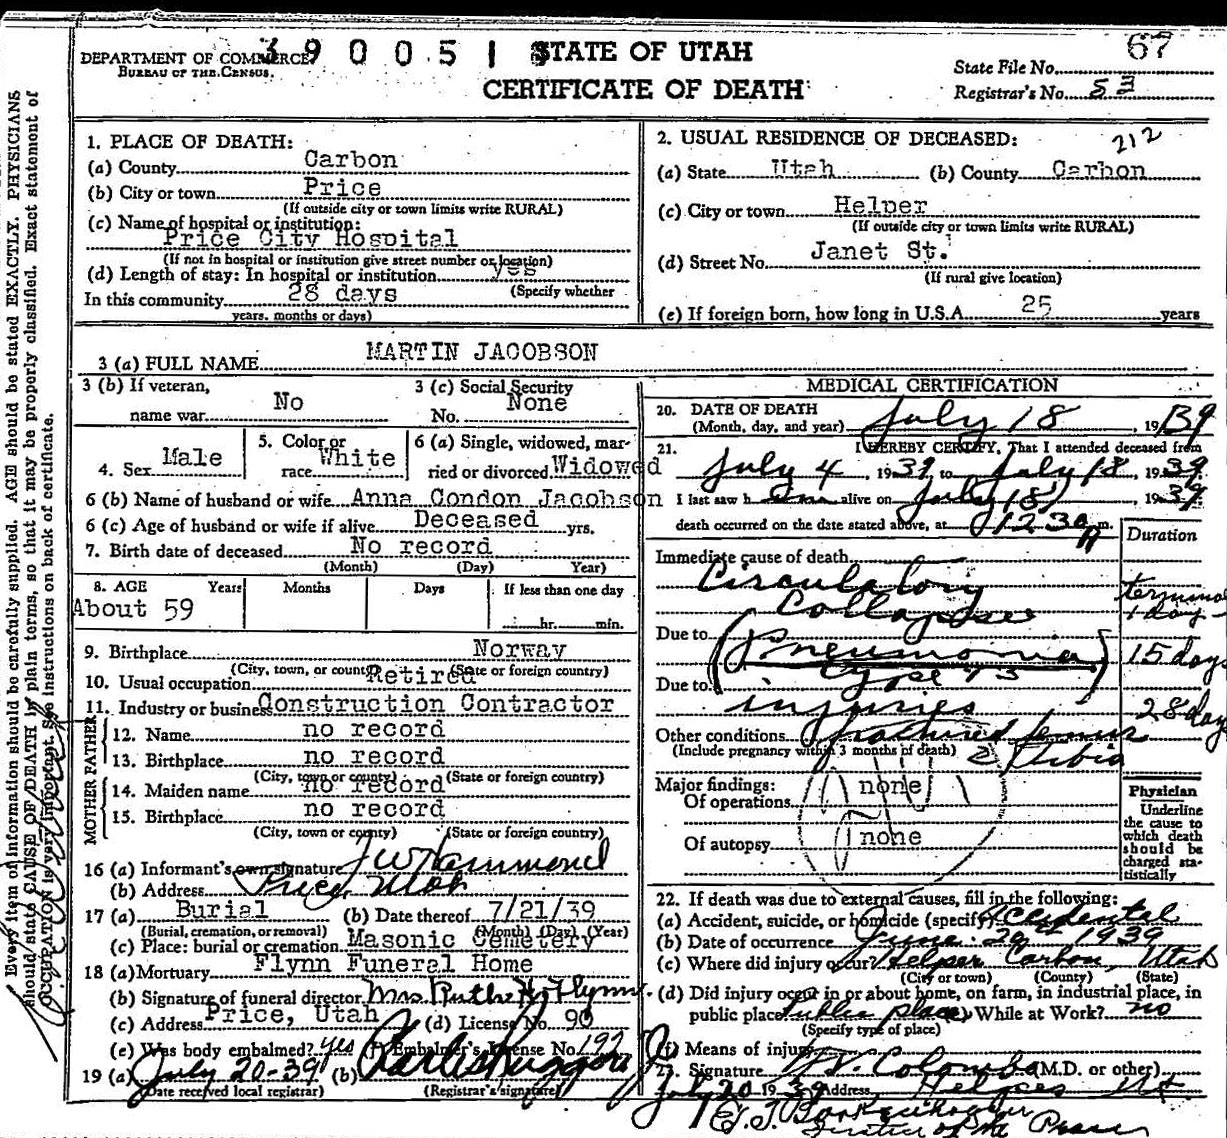 390051
STATE OF UTAH
CERTIFICATE OF DEATH
DEPARTMENT OF COMMERCE
BUREAU OF THE CENSUS
State File No. 67
Registrar's No. 53
Every item of information should be carefully supplied. AGE should be stated EXACTLY. PHYSICIANS
should state CAUSE OF DEATH in plain terms, so that it may be properly classified. Exact statement of
OCCUPATION is very important. See instructions on back of certificate.
1. PLACE OF DEATH:
(a) County Carbon
(b) City or town Price
(If outside city or town limits write RURAL)
(c) Name of hospital or institution:
Price City Hospital
(If not in hospital or institution give street number or location)
(d) Length of stay: In hospital or institution yes
(Specify whether
In this community 28 days
years, months or days)
2. USUAL RESIDENCE OF DECEASED: 212
(a) State Utah (b) County Carbon
(c) City or town Helper
(If outside city or town limits write RURAL)
(d) Street No. Janet St.
(If rural give location)
(e) If foreign born, how long in U.S.A. 25 years
3 (a) FULL NAME MARTIN JACOBSON
3 (b) If veteran,
name war No
3 (c) Social Security
No. None
4. Sex Male
5. Color or
race White
6 (a) Single, widowed, mar-
ried or divorced Widowed
6 (b) Name of husband or wife Anna Condon Jacobson
6 (c) Age of husband or wife if alive Deceased yrs.
7. Birth date of deceased No record
(Month) (Day) Year)
8. AGE Years Months Days If less than one day
About 59 hr. min.
9. Birthplace Norway
(City, town, or county) (State or foreign country)
10. Usual occupation Retired
11. Industry or business Construction Contractor
FATHER
12. Name no record
13. Birthplace no record
(City, town or county) (State or foreign country)
MOTHER
14. Maiden name no record
15. Birthplace no record
(City, town or county) (State or foreign country)
16 (a) Informant's own signature J W Hammond
(b) Address Price, Utah
17 (a) Burial (b) Date thereof 7/21/39
(Burial, cremation, or removal) (Month) (Day) (Year)
(c) Place: burial or cremation Masonic Cemetery
18 (a) Mortuary Flynn Funeral Home
(b) Signature of funeral director Mrs. Ruth H. Flynn
(c) Address Price, Utah (d) License No. 90
(e) Was body embalmed? yes (f) Embalmer's License No. 192
19 (a) July 20-39 (b) Charles Ruggeri
(Date received local registrar) (Registrar's signature)
MEDICAL CERTIFICATION
20. DATE OF DEATH
(Month, day, and year) July 18, 1939
21. I HEREBY CERTIFY, That I attended deceased from
July 4, 1939 to July 18, 1939
I last saw him alive on July 18, 1939
death occurred on the date stated above, at 12:30 A m.
Duration
Immediate cause of death
Circulatory
Collapse terminal 1 day
Due to (Pneumonia 15 days
Type # 3)
Due to injuries 28 days
Other conditions fractured femur
(Include pregnancy within 3 months of death) & Tibia
Major findings:
Of operations none
Of autopsy none
Physician
Underline
the cause to
which death
should be
charged sta-
tistically
22. If death was due to external causes, fill in the following:
(a) Accident, suicide, or homicide (specify) Accidental
(b) Date of occurrence June 20th 1939
(c) Where did injury occur? Helper Carbon, Utah
(City or town) (County) (State)
(d) Did injury occur in or about home, on farm, in industrial place, in
public place? Public place (e) While at Work? no
(Specify type of place)
(f) Means of injury
23. Signature Colombo (M.D. or other)
July 20 1939 Address Helper Ut
Justice of the Peace